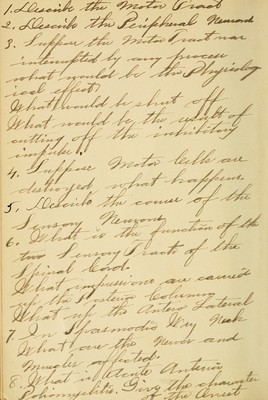 1. Describe the Motor Tract
2. Describe the Peripheral Neurons
3. Suppose the Motor Tract was
interrupted by any process
what would be the Physiolog
ical effect.
What would be shut off
What would be the result of
cutting off the inhibitory
impulse.
4. Suppose Motor Cells are
destroyed what happens.
5. Describe the course of the
Sensory Neurons.
6. What is the function of the
two Sensory Tracts of the
Spinal Cord.
What impressions are carried
up the Posterior Columns
What up the Antero Lateral
7. In Spasmodic Wry Neck
What are the Nerves and
Muscles affected.
8. What is Acute Anterior
Poliomyelitis. Give the character
of the Onset